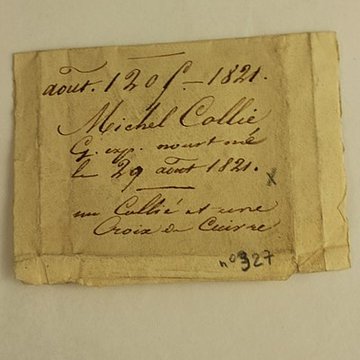 août. 120 f. — 1821.
Michel Collié
G. exp. nourt né
le 29 août 1821.
un Collié et une
Croix de Cuivre
n° 327